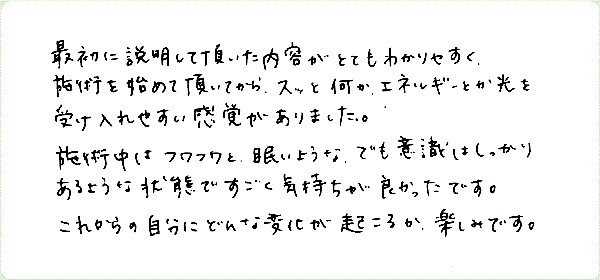 最初に説明して頂いた内容がとてもわかりやすく、
施術を始めて頂いてから、スッと何か、エネルギーとか光を
受け入れやすい感覚がありました。
施術中はフワフワと、眠いような、でも意識はしっかり
あるような状態ですごく気持ちが良かったです。
これからの自分にどんな変化が起こるか、楽しみです。